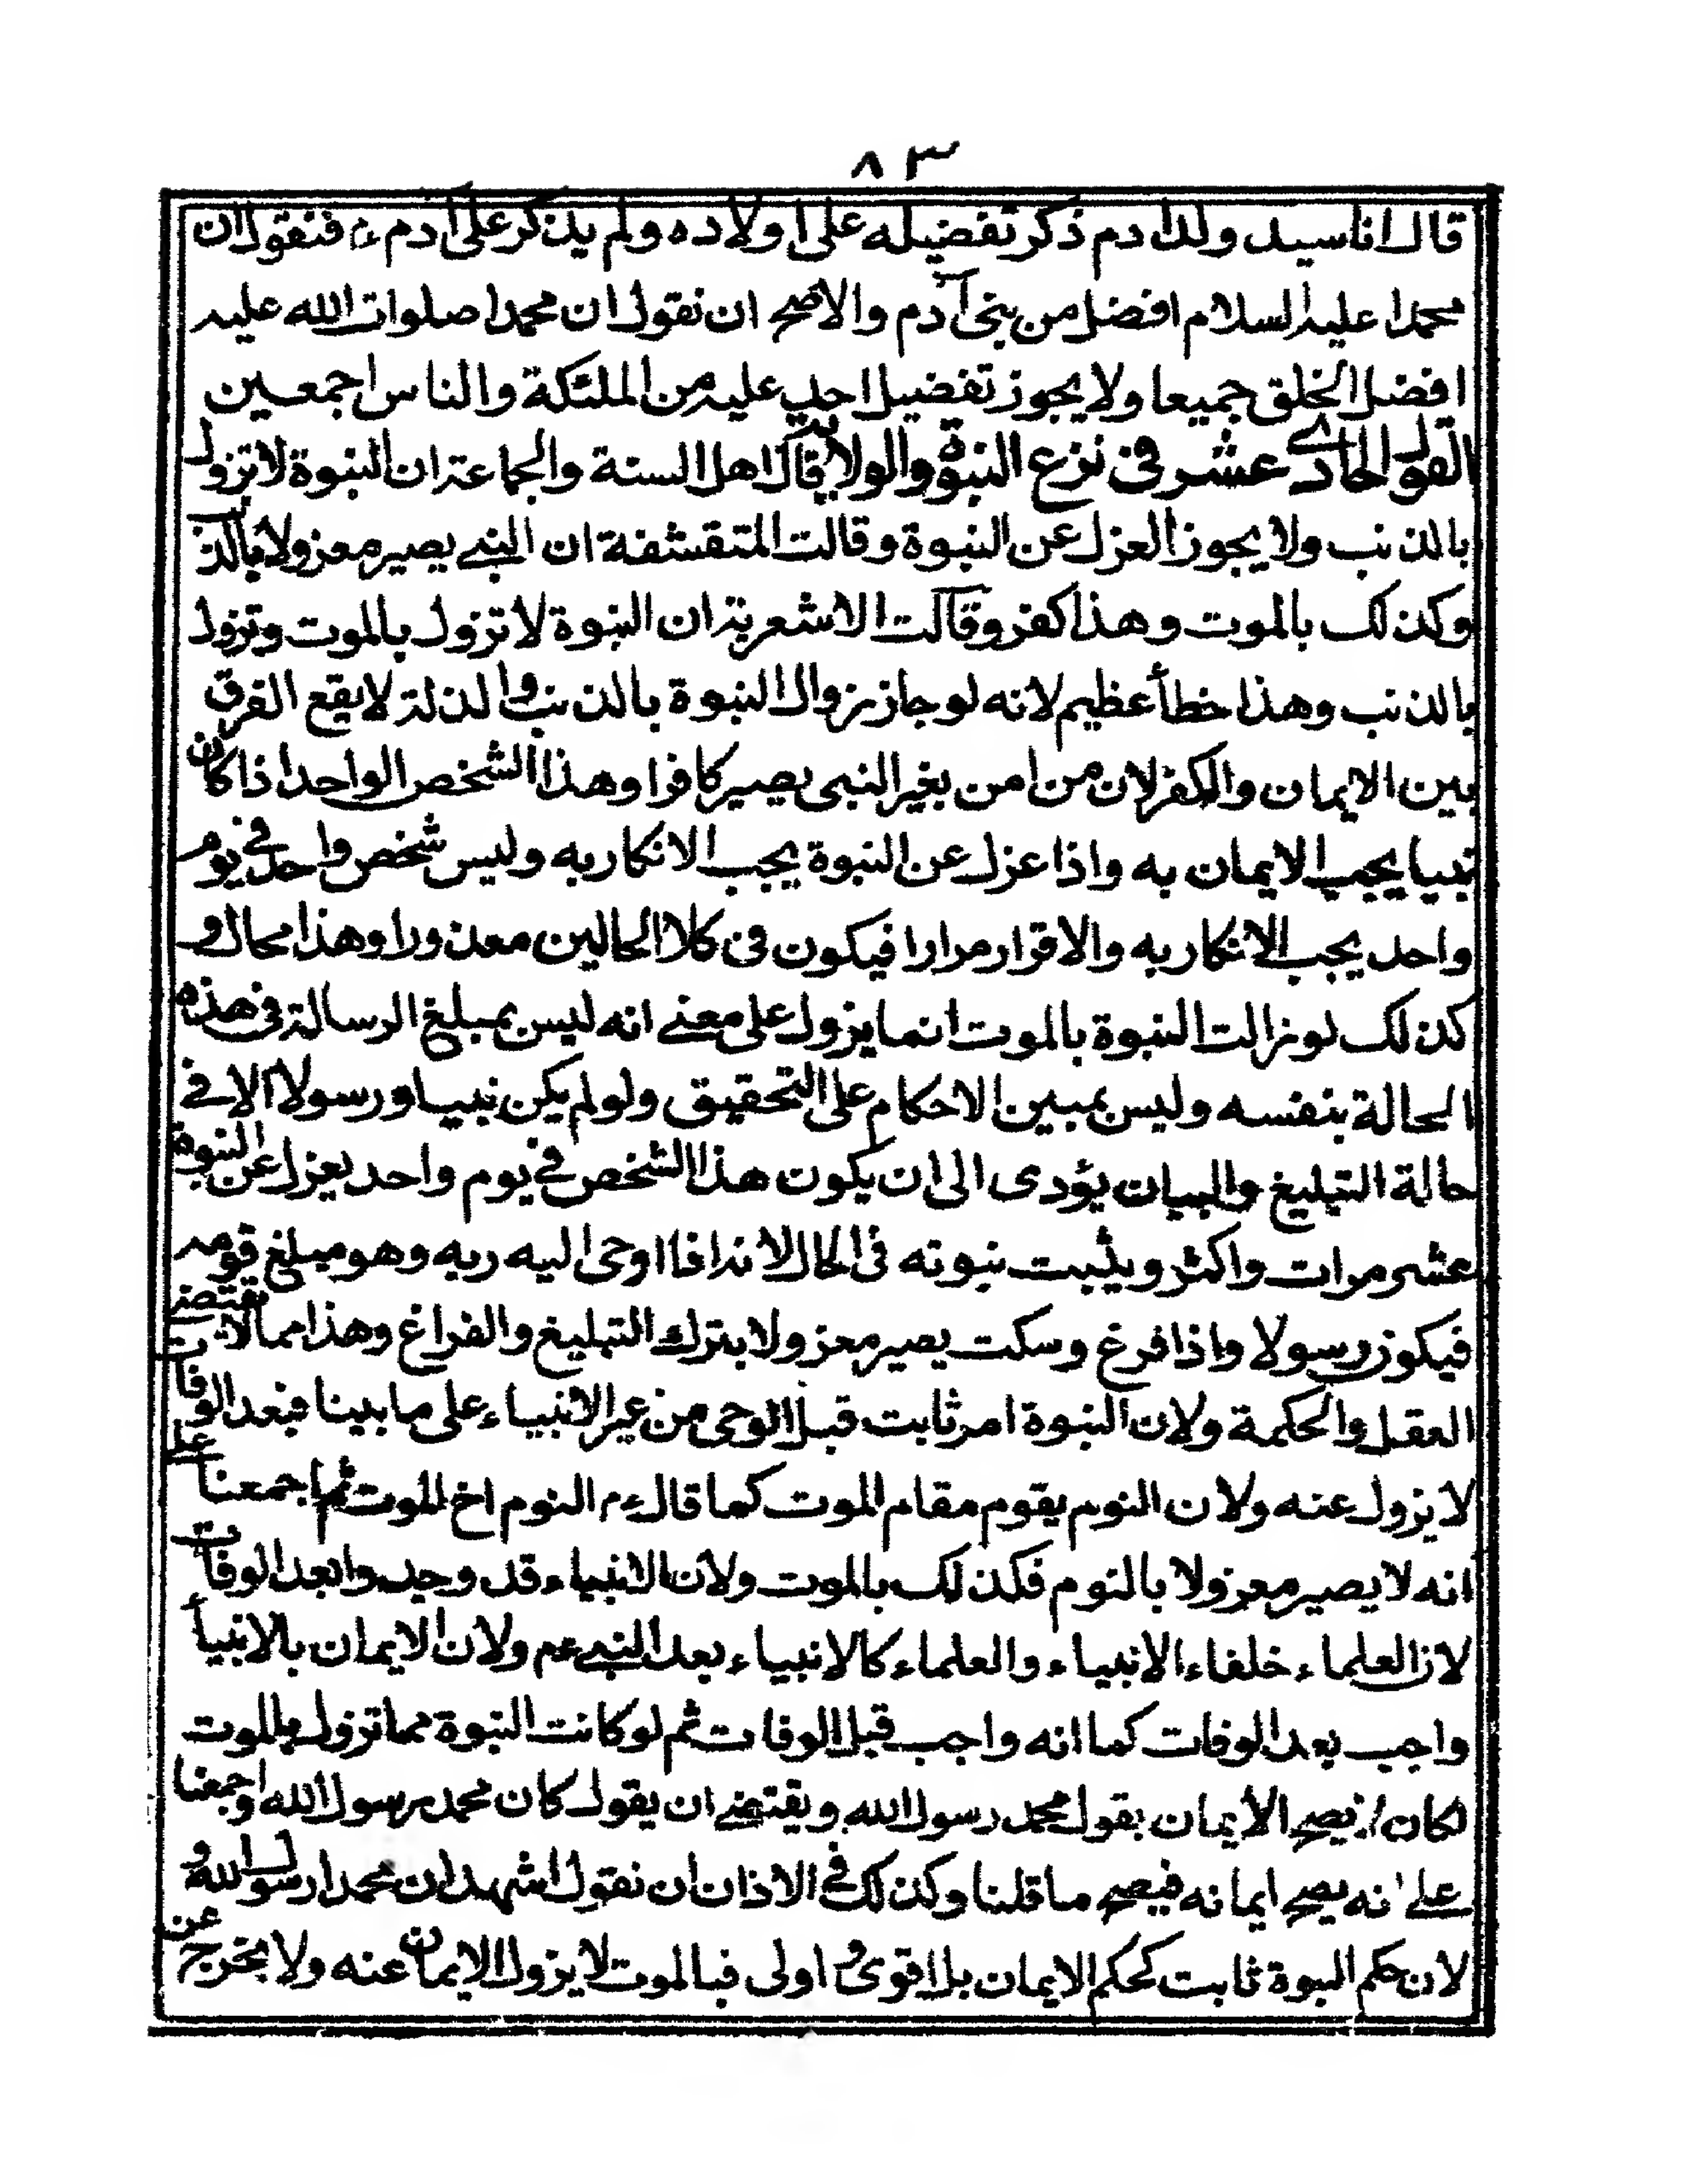 ٨٣
قال انا سيد ولد ادم ذكر تفضيله على اولاده ولم يذكر على ادم ع فنقول ان
محمدا عليه السلام افضل من بنى آدم والاصح ان نقول ان محمدا صلوات الله عليه
افضل الخلق جميعا ولا يجوز تفضيل احد عليه من الملئكة والناس اجمعين
القول الحادى عشر فى نزع النبوة والولاية قال اهل السنة والجماعة ان النبوة لا تزول
بالذنب ولا يجوز العزل عن النبوة وقالت المتقشفة ان النبى يصير معزولا بالذنب
وكذلك بالموت وهذا كفر وقالت الاشعرية ان النبوة لا تزول بالموت وتزول
بالذنب وهذا خطأ عظيم لانه لو جاز زوال النبوة بالذنب والذلة لا يقع الفرق
بين الايمان والكفر لان من امن بغير النبى يصير كافرا وهذا الشخص الواحد اذا كان
نبيا يجب الايمان به واذا عزل عن النبوة يجب الانكار به وليس شخص واحد فى يوم
واحد يجب الانكار به والاقرار مرارا فيكون فى كلا الحالين معذورا وهذا محال و
كذلك لو زالت النبوة بالموت انما يزول على معنى انه ليس بمبلغ الرسالة فى هذه
الحالة بنفسه وليس بمبين الاحكام على التحقيق ولو لم يكن نبيا ورسولا الا فى
حالة التبليغ والبيان يؤدى الى ان يكون هذا الشخص فى يوم واحد يعزل عن النبوة
عشر مرات واكثر ويثبت نبوته فى الحال لانه اذا اوحى اليه ربه وهو مبلغ قومه
فيكون رسولا واذا فرغ وسكت يصير معزولا بترك التبليغ والفراغ وهذا مما لا يقتضيه
العقل والحكمة ولان النبوة امر ثابت قبل الوحى من غير الانبياء على ما بينا فبعد الوفات
لا يزول عنه ولان النوم يقوم مقام الموت كما قال ءم النوم اخ الموت ثم اجمعنا على
انه لا يصير معزولا بالنوم فكذلك بالموت ولان الانبياء قد وجدوا بعد الوفات
لان العلماء خلفاء الانبياء والعلماء كالانبياء بعد النبى عم ولان الايمان بالانبيأ
واجب بعد الوفات كما انه واجب قبل الوفات ثم لو كانت النبوة مما تزول بالموت
لكان لا يصح الايمان بقول محمد رسول الله ويقتضى ان يقول كان محمد رسول الله واجمعنا
على انه يصح ايمانه فيصح ما قلنا وكذلك فى الاذان ان نقول اشهد ان محمدا رسول الله و
لان حكم النبوة ثابت كحكم الايمان بل اقوى و اولى فبالموت لا يزول الايمان عنه ولا يخرج عن